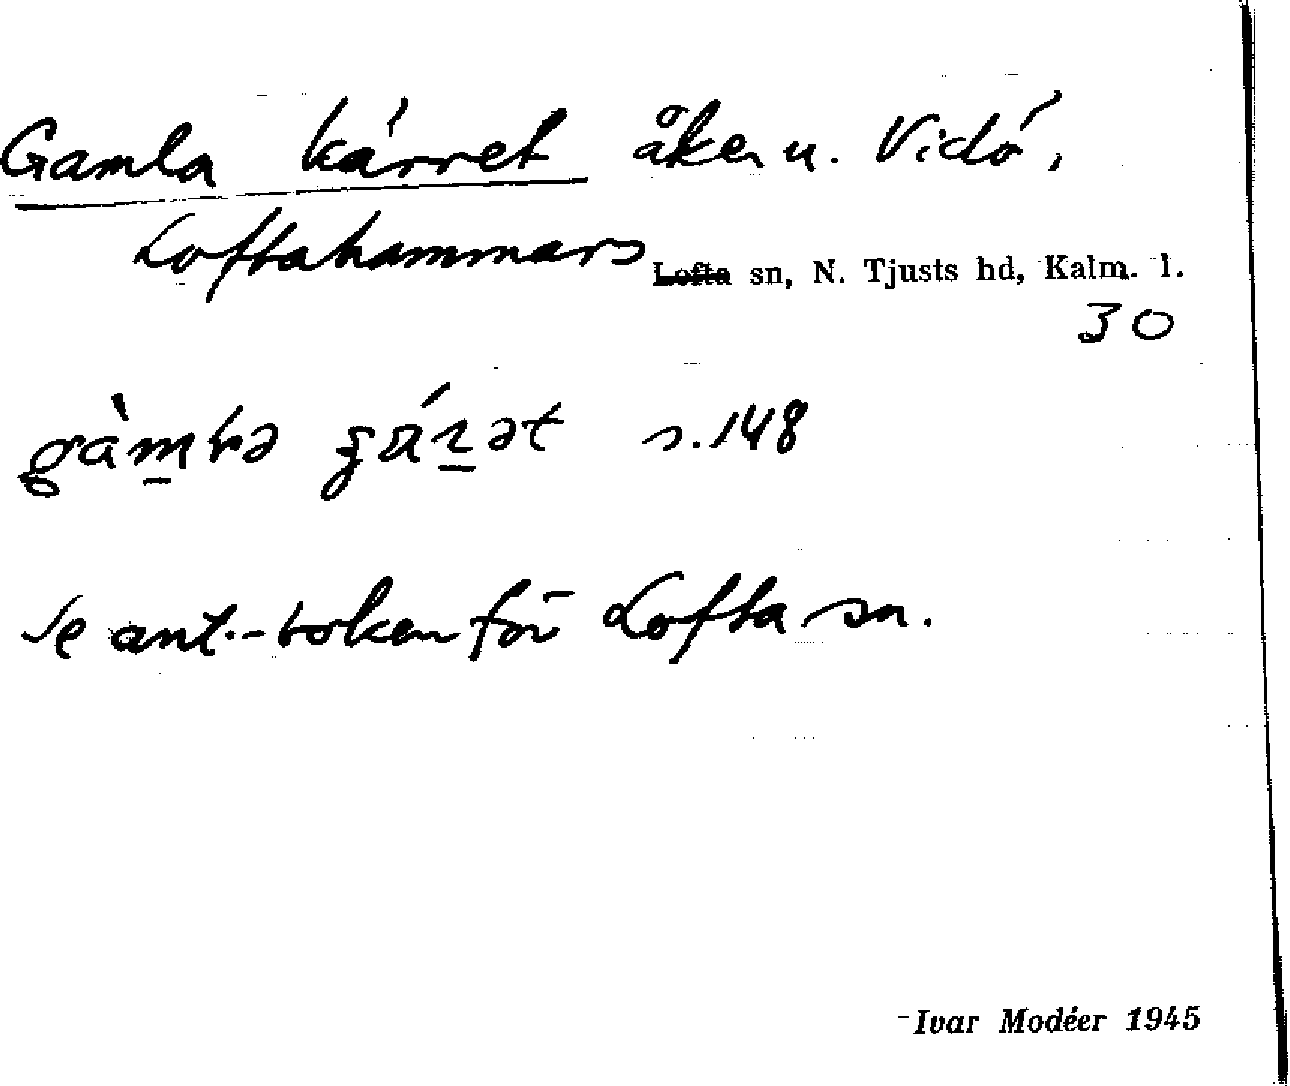 Gamla kärret åker u. Vidö,
Loftahammars Lofta sn, N. Tjusts hd, Kalm. l.
30
s. 148
Se ant.-boken för Lofta sn.
Ivar Modéer 1945